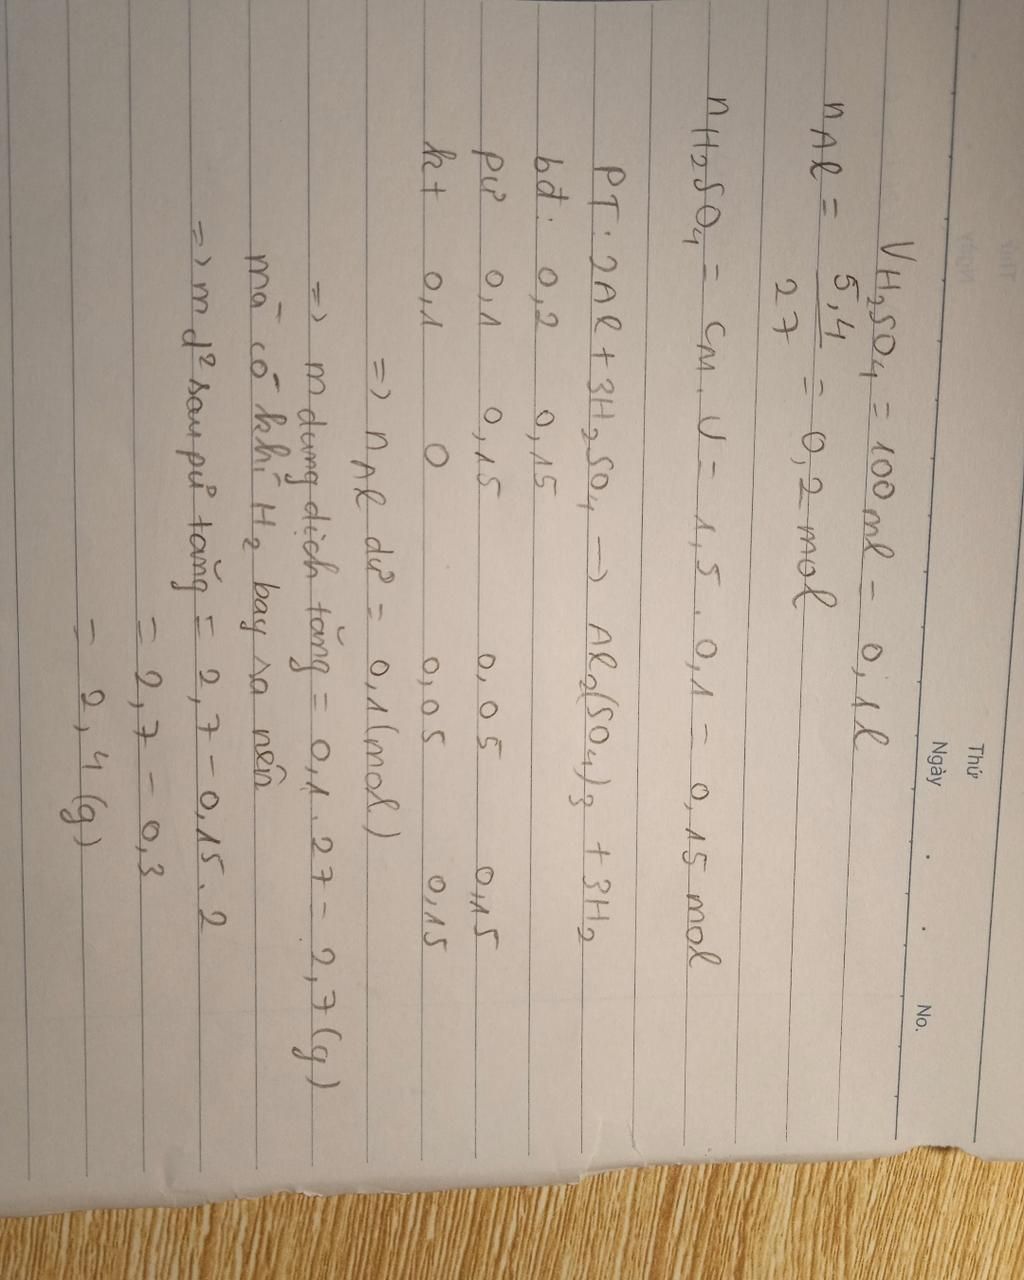 Thứ
Ngày . . No.
VH₂SO₄ = 100ml = 0,1l
nAl = 5,4/27 = 0,2 mol
nH₂SO₄ = CM. V = 1,5 . 0,1 = 0,15 mol
PT: 2Al + 3H₂SO₄ → Al₂(SO₄)₃ + 3H₂
bđ: 0,2 0,15
pứ 0,1 0,15 0,05 0,15
kt 0,1 0 0,05 0,15
=> nAl dư = 0,1 (mol)
=> m dung dịch tăng = 0,1 . 27 = 2,7 (g)
mà có khí H₂ bay ra nên
=> m d² sau pứ tăng = 2,7 - 0,15 . 2
= 2,7 - 0,3
= 2,4 (g)